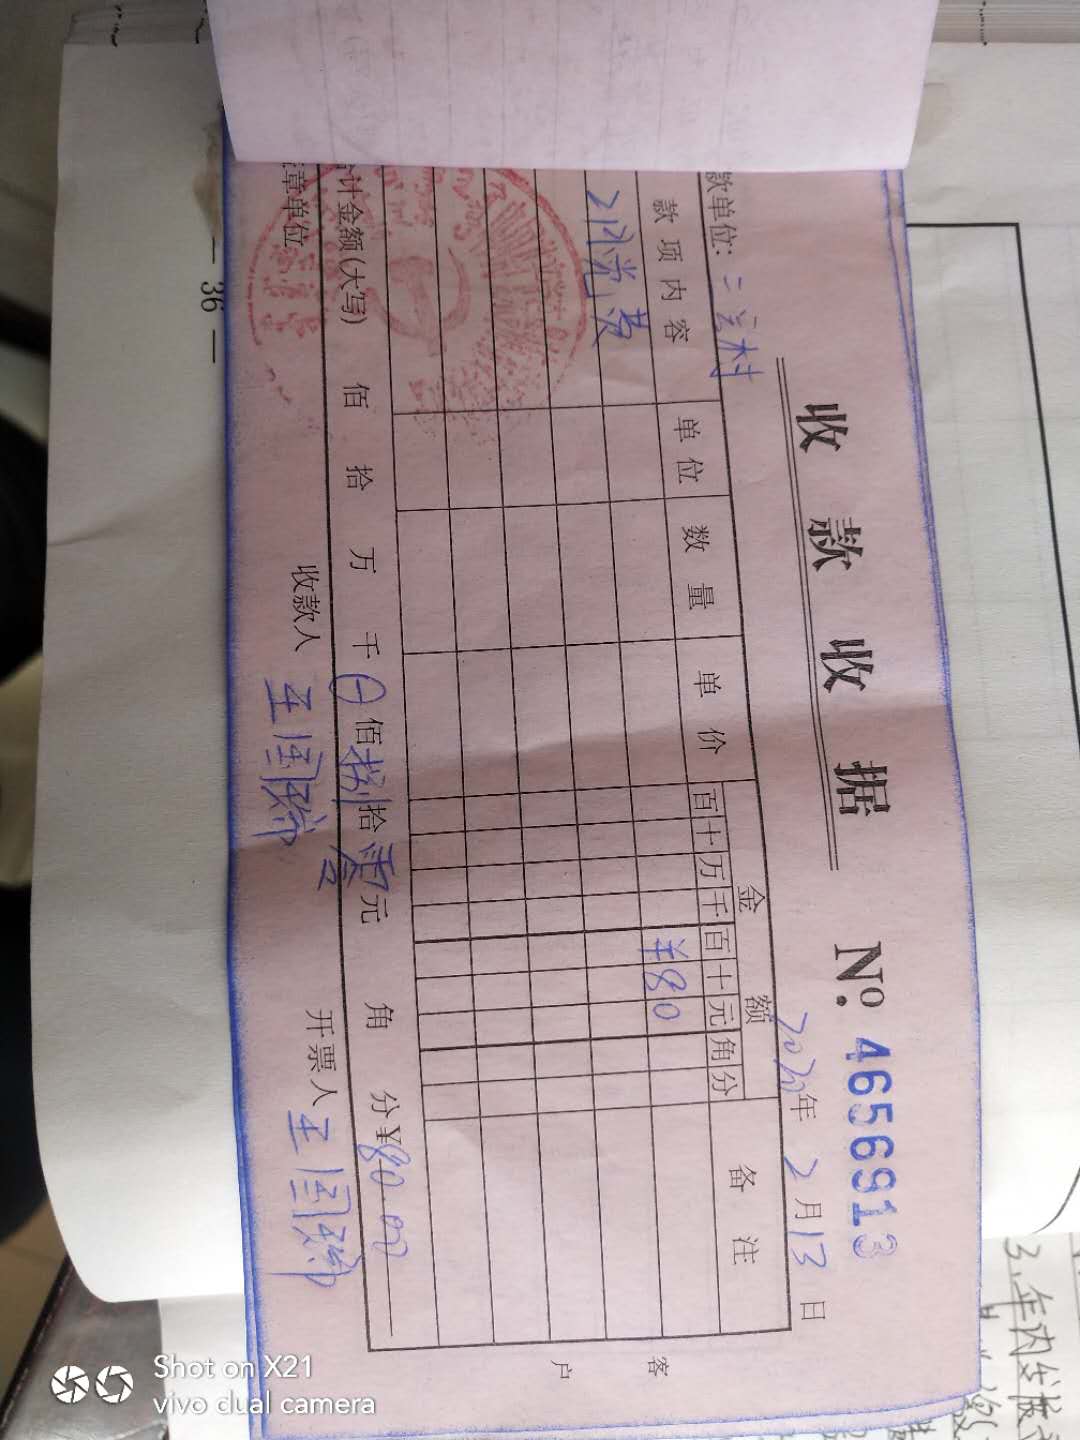 收款收据
№. 4656913
款单位: 二云村
2020年 2月13日
款项内容 单位 数量 单价 金额 备注
百十万千百十元角分
费
¥80
计金额(大写) 佰 拾 万 千 佰捌拾零元 角 分 ¥80.00
章单位 收款人 王国 开票人 王国
客户
— 36 —
3.年内
Shot on X21
vivo dual camera